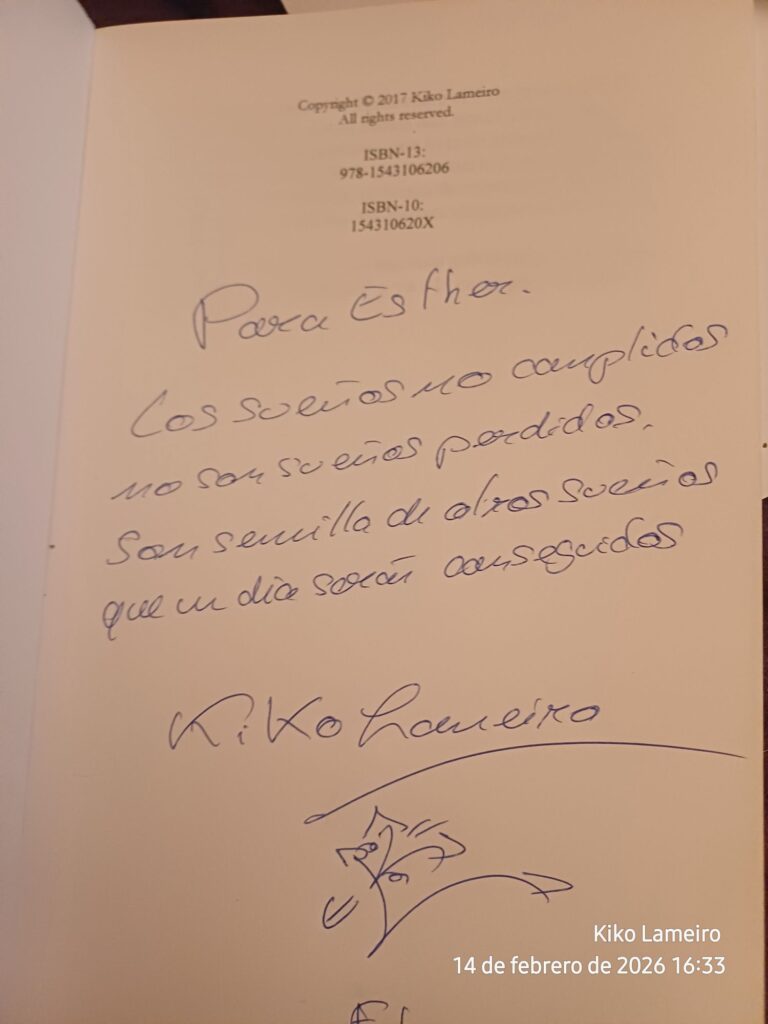 Copyright © 2017 Kiko Lameiro
All rights reserved.
ISBN-13:
978-1543106206
ISBN-10:
154310620X
Para Esther.
Los sueños no cumplidos
no son sueños perdidos,
son semilla de otros sueños
que un día serán conseguidos
Kiko Lameiro
Kiko Lameiro
14 de febrero de 2026 16:33